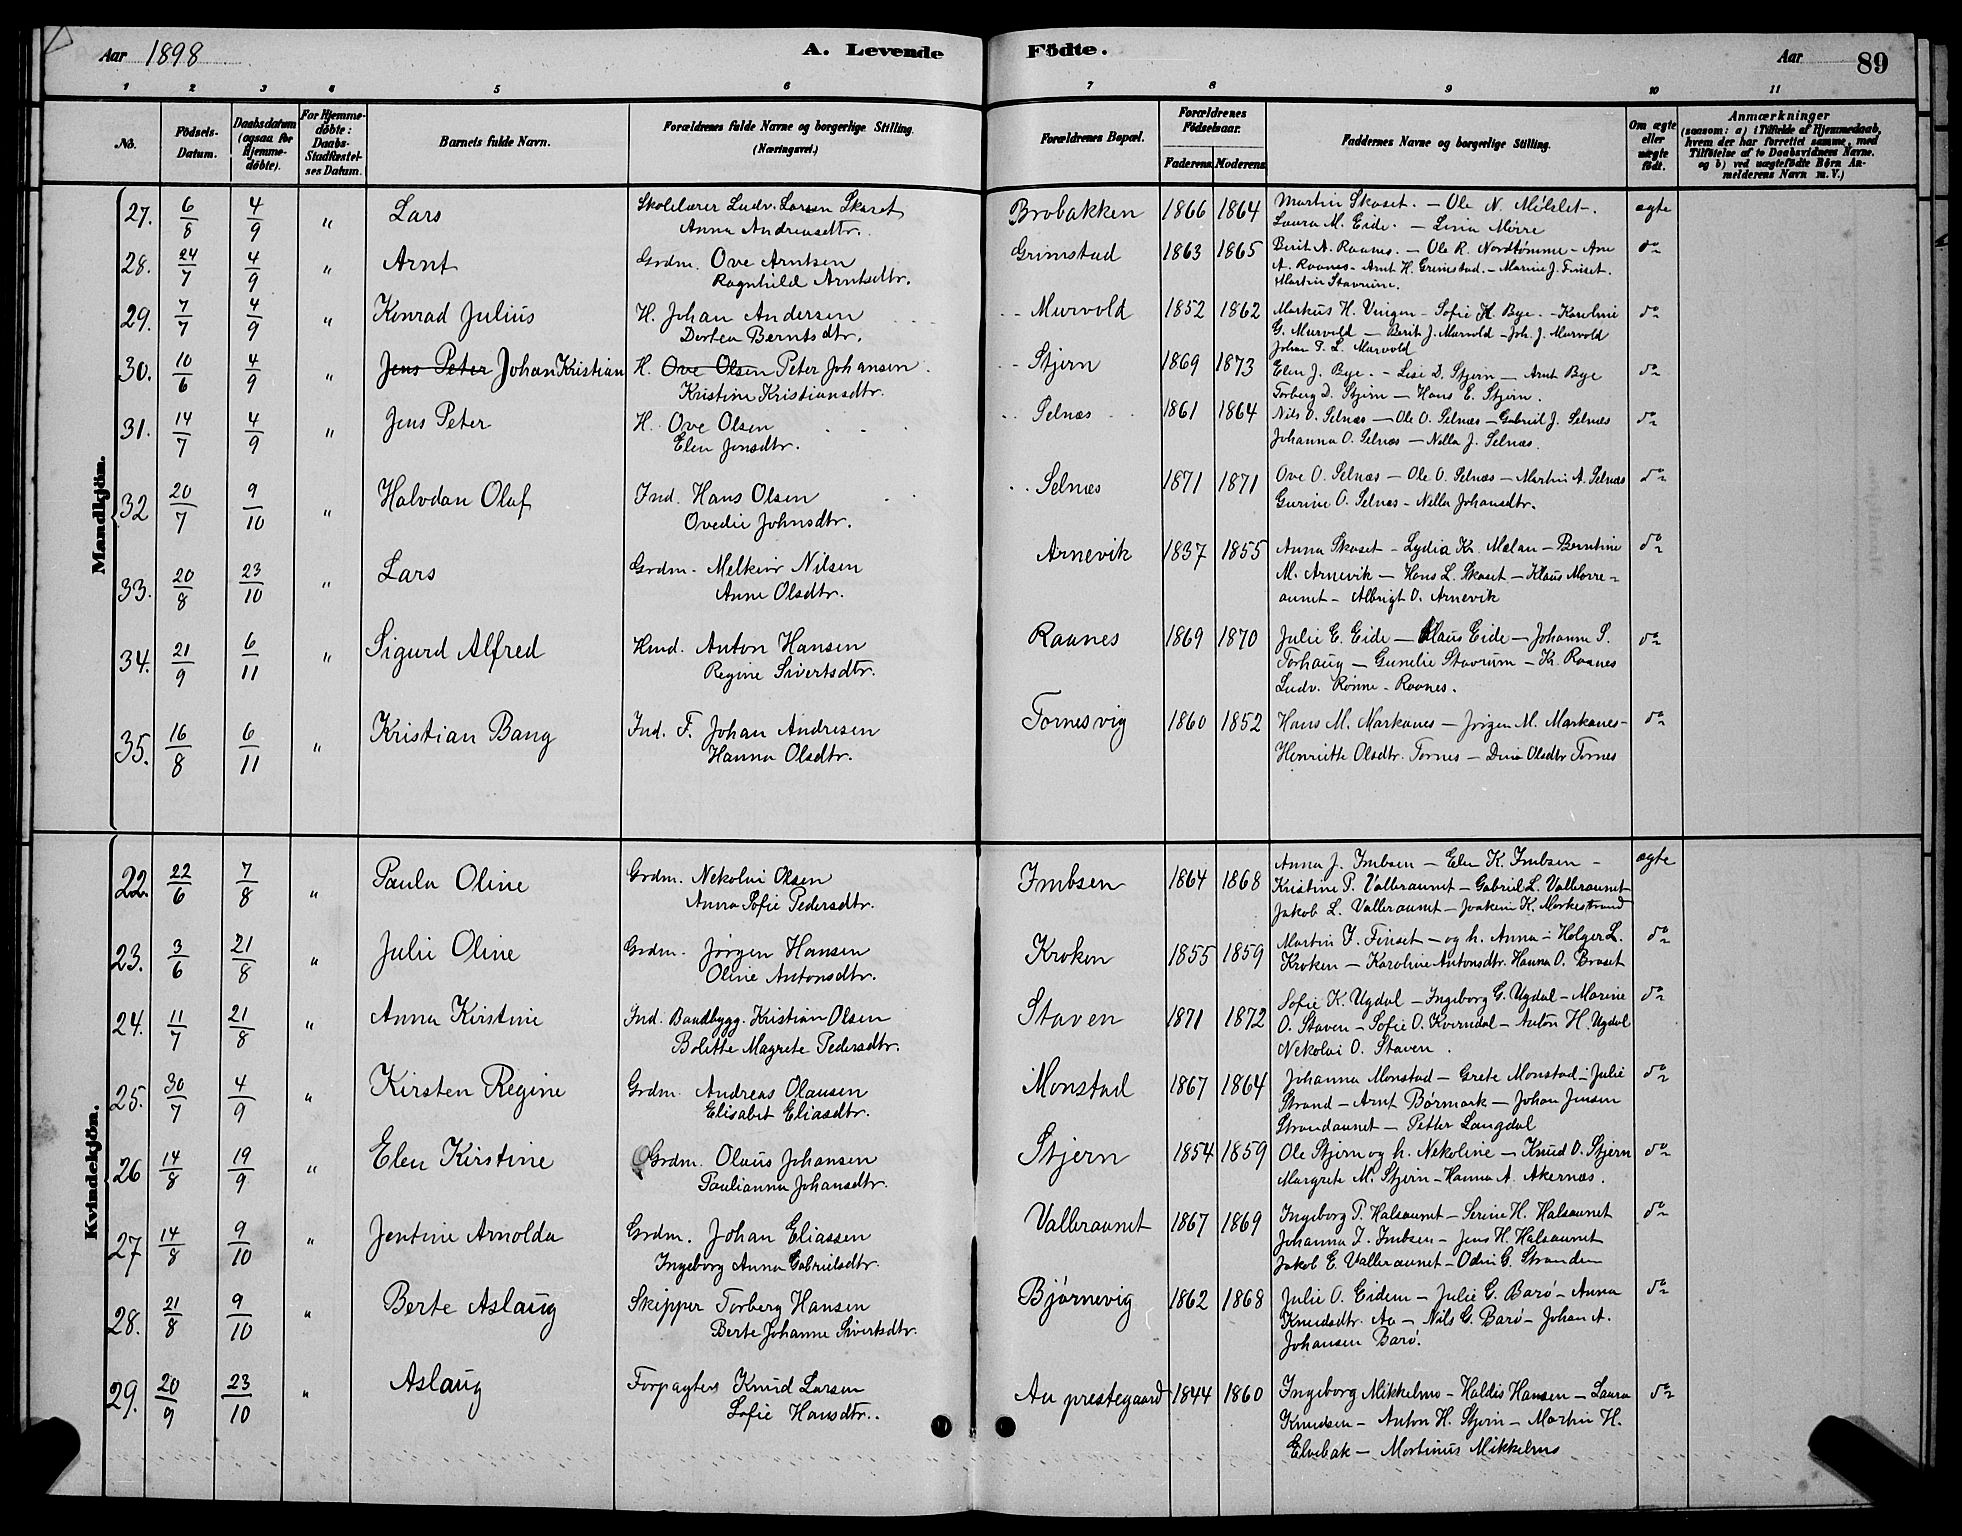 Aar 1898 A. Levende Födte. Aar 89
1 2 3 4 5 6 7 8 9 10 11
No. Födsels-Datum. Daabsdatum (ogsaa for Hjemme-döbte). For Hjemme-döbte: Daabs-Stadfæstel-ses Datum. Barnets fulde Navn. Forældrenes fulde Navne og borgerlige Stilling. (Næringsvei.) Forældrenes Bopæl. Forældrenes Födselsaar. Faderens Moderens Faddernes Navne og borgerlige Stilling. Om ægte eller uægte födt. Anmærkninger (saasom: a) i Tilfælde af Hjemmedaab, hvem der har forrettet samme, med Tilföielse af to Daabsvidners Navne. og b) ved uægtefödte Börn An-melderens Navn m. V.)
Mandkjön.
27. 6/8 4/9 " Lars Skolelærer Ludv. Larsen Skaset Brobakken 1866 1864 Martin Skaset. – Ole N. Mölslet. – ægte
Anna Andreasdtr. Laura M. Eide. – Lina Mörre
28. 24/7 4/9 " Arnt Grdm. Ove Arntsen Grimstad 1863 1865 Berit A. Raanes. – Ole R. Nordtømme – Ane do
Ragnhild Arntsdtr. A. Raanes – Arnt H. Grimstad. – Marine J. Finset.
Martin Stavrum.
29. 7/7 4/9 " Konrad Julius H. Johan Andersen Murvold 1852 1862 Markus H. Vingen – Sofie H. Bye. – Karoline do
Dortea Berntsdtr. G. Murvold – Berit J. Murvold – Joh. J. Murvold
Johan P. L. Murvold
30. 10/6 4/9 " Jens Peter Johan Kristian H. Ove Olsen Peter Johansen Stjern 1869 1873 Elen J. Bye. – Lise D. Stjern – Arnt Bye do
Kristine Kristiansdtr. Torberg D. Stjern – Hans E. Stjern.
31. 14/7 4/9 " Jens Peter H. Ove Olsen Selnæs 1861 1864 Nils O. Selnæs – Ole O. Selnæs – Gabriel J. Selnæs do
Elen Jensdtr. Johanna O. Selnæs – Nella J. Selnæs.
32 20/7 9/10 " Halvdan Olaf Ind. Hans Olsen Selnæs 1871 1871 Ove O. Selnæs – Ole O. Selnæs – Martin A. Selnæs do
Ovedie Johnsdtr. Gurine O. Selnæs – Nella Johansdtr.
33. 20/8 23/10 " Lars Grdm. Melkior Nilsen Arnevik 1837 1855 Anna Skaset – Lydia Kr. Mælan – Berntine do
Anne Olsdtr. M. Arnevik – Hans L. Skaset – Klaus Morre-
aunet – Albrigt O. Arnevik
34. 21/9 6/11 " Sigurd Alfred Hmd. Anton Hansen Raanes 1869 1870 Julie E. Eide – Klaus Eide – Johanne S. do
Regine Sivertsdtr. Torhaug – Gunelie Stavrum – Kr. Raanes
Ludv. Rönne – Raanes.
35. 16/8 6/11 " Kristian Bang Ind. F. Johan Andresen Tornesvig 1860 1852 Hans M. Markanes – Jörgen M. Markanes – do
Hanna Olsdtr. Henriette Olsdtr. Tornes – Dina Olsdtr Tornes
Kvindekjön.
22. 22/6 7/8 " Paula Oline Grdm. Nekolai Olsen Imbsen 1864 1868 Anna J. Imbsen – Elen K. Imbsen – ægte
Anna Sofie Pedersdtr. Kristine P. Valleraunet – Gabriel L. Valleraunet
Jakob L. Valleraunet – Joakim K. Morkestrand
23. 3/6 21/8 " Julie Oline Grdm. Jörgen Hansen Kroken 1855 1859 Martin J. Finset – og h. Anna – Holger L. do
Oline Antonsdtr. Kroken – Karoline Antonsdtr. Hanna O. Braset
24. 11/7 21/8 " Anna Kirstine Ind. Baadbygg. Kristian Olsen Staven 1871 1872 Sofie K. Ugdal – Ingeborg G. Ugdal – Marine do
Bolette Magrete Pedersdtr. O. Staven – Sofie O. Kverndal – Anton H. Ugdal
Nekolai O. Staven.
25. 30/7 4/9 " Kirsten Regine Grdm. Andreas Olausen Monstad 1867 1864 Johanna Monstad – Grete Monstad – Julie do
Elisabet Eliasdtr. Strand – Arnt Börmark – Johan Jensen
Strandaunet – Petter Langdal
26 14/8 19/9 " Elen Kirstine Grdm. Olaus Johansen Stjern 1854 1859 Ole Stjern og h. Nekoline – Knud O. Stjern do
Paulianna Johansdtr. Margrete M. Stjern – Hanna A. Akernæs.
27 14/8 9/10 " Jentine Arnolda Grdm. Johan Eliassen Valleraunet 1867 1869 Ingeborg P. Halsaunet – Serine H. Halsaunet do
Ingeborg Anna Gabrielsdtr. Johanna J. Imbsen – Jens H. Halsaunet
Jakob E. Valleraunet – Odin G. Stranden
28. 21/8 9/10 " Berte Aslaug Skipper Torberg Hansen Bjørnevig 1862 1868 Julie O. Eidem – Julie G. Barø – Anna do
Berte Johanne Sivertsdtr. Knudsdtr. Aa – Nils G. Barø – Johan A.
Johansen Barø.
29. 20/9 23/10 " Aslaug Forpagter Knud Larsen Aa prestegaard 1844 1860 Ingeborg Mikkelmo – Haldis Hansen – Laura do
Sofie Hansdtr. Knudsen – Anton H. Stjern – Martin H.
Elvebak – Martinus Mikkelmo